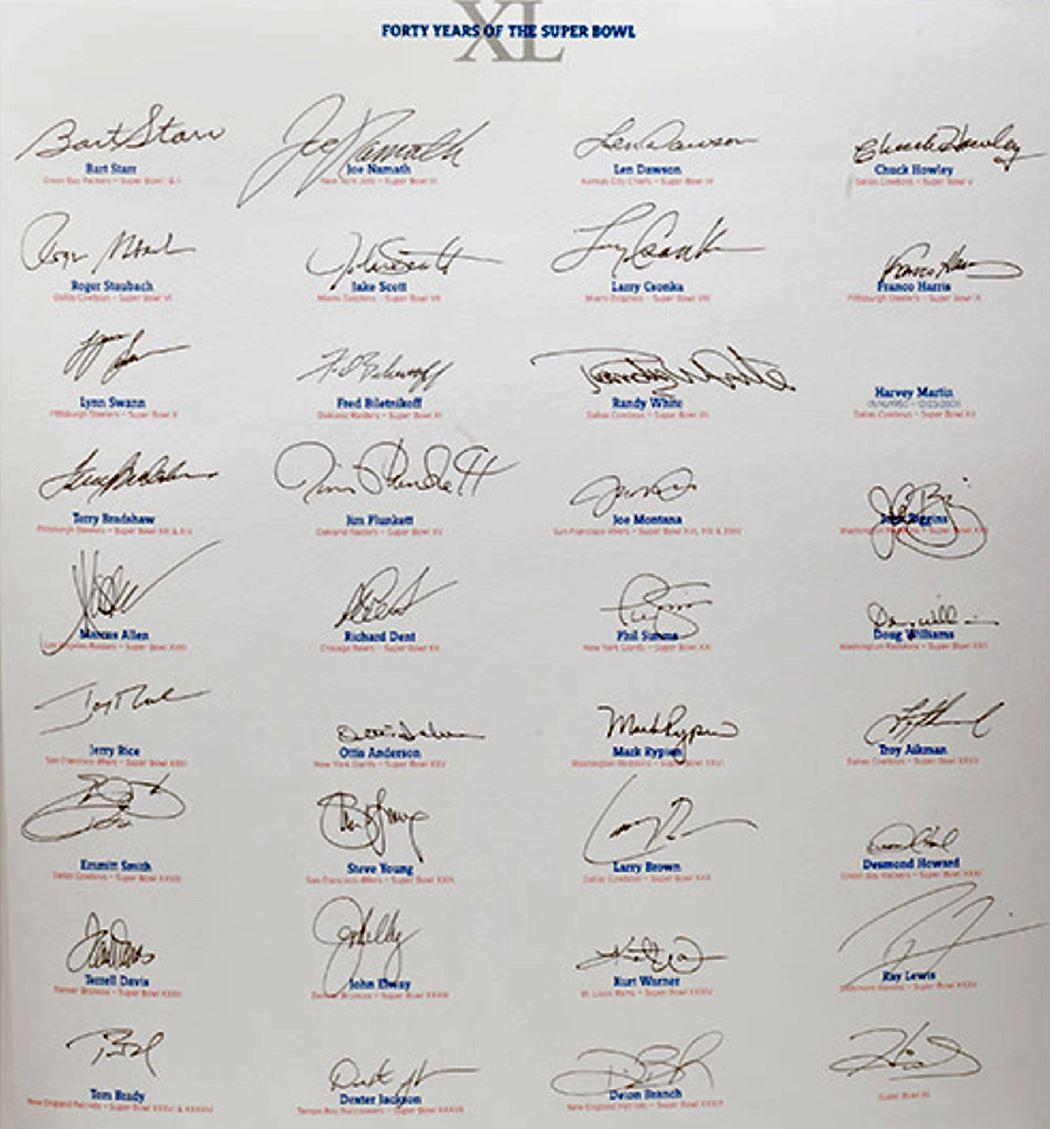 XL
FORTY YEARS OF THE SUPER BOWL
Bart Starr Joe Namath Len Dawson Chuck Howley
Bart Starr Joe Namath Len Dawson Chuck Howley
Green Bay Packers - Super Bowl I & II New York Jets - Super Bowl III Kansas City Chiefs - Super Bowl IV Dallas Cowboys - Super Bowl V
Roger Staubach Jake Scott Larry Csonka Franco Harris
Dallas Cowboys - Super Bowl VI Miami Dolphins - Super Bowl VII Miami Dolphins - Super Bowl VIII Pittsburgh Steelers - Super Bowl IX
Randy White
Lynn Swann Fred Biletnikoff Randy White Harvey Martin
Pittsburgh Steelers - Super Bowl X Oakland Raiders - Super Bowl XI Dallas Cowboys - Super Bowl XII Dallas Cowboys - Super Bowl XII
Jim Plunkett
Terry Bradshaw Jim Plunkett Joe Montana John Riggins
Pittsburgh Steelers - Super Bowl XIII & XIV Oakland Raiders - Super Bowl XV San Francisco 49ers - Super Bowl XVI, XIX & XXIV Washington Redskins - Super Bowl XVII
Marcus Allen Richard Dent Phil Simms Doug Williams
Los Angeles Raiders - Super Bowl XVIII Chicago Bears - Super Bowl XX New York Giants - Super Bowl XXI Washington Redskins - Super Bowl XXII
Mark Rypien
Jerry Rice Ottis Anderson Mark Rypien Troy Aikman
San Francisco 49ers - Super Bowl XXIII New York Giants - Super Bowl XXV Washington Redskins - Super Bowl XXVI Dallas Cowboys - Super Bowl XXVII
Emmitt Smith Steve Young Larry Brown Desmond Howard
Dallas Cowboys - Super Bowl XXVIII San Francisco 49ers - Super Bowl XXIX Dallas Cowboys - Super Bowl XXX Green Bay Packers - Super Bowl XXXI
Terrell Davis John Elway Kurt Warner Ray Lewis
Denver Broncos - Super Bowl XXXII Denver Broncos - Super Bowl XXXIII St. Louis Rams - Super Bowl XXXIV Baltimore Ravens - Super Bowl XXXV
Tom Brady Dexter Jackson Deion Branch
New England Patriots - Super Bowl XXXVI & XXXVIII Tampa Bay Buccaneers - Super Bowl XXXVII New England Patriots - Super Bowl XXXIX Super Bowl XL